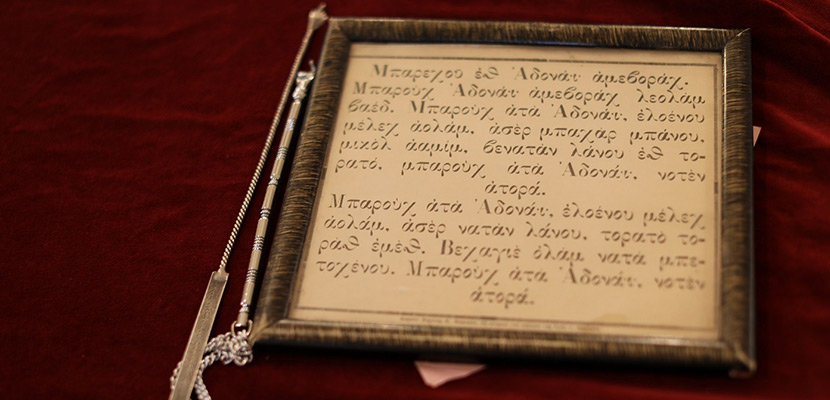 Μπαρεχου ἐθ Ἀδονάϊ ἀμεβοράχ.
Μπαροὺχ Ἀδονάϊ ἀμεβοράχ λεολάμ
βαέδ. Μπαροὺχ ἀτὰ Ἀδονάϊ, ἐλοένου
μέλεχ ἀολάμ, ἀσὲρ μπαχὰρ μπάνου,
μικὸλ ἀαμίμ, βενατὰν λάνου ἐθ το-
ρατὸ, μπαροὺχ ἀτὰ Ἀδονάϊ, νοτὲν
ἀτορά.
Μπαροὺχ ἀτὰ Ἀδονάϊ, ἐλοένου μέλεχ
ἀολάμ, ἀσὲρ νατὰν λάνου, τορατὸ το-
ραθ ἐμέθ. Βεχαγιὲ ὀλάμ νατά μπε-
τοχένου. Μπαροὺχ ἀτὰ Ἀδονάϊ, νοτὲν
ἀτορά.